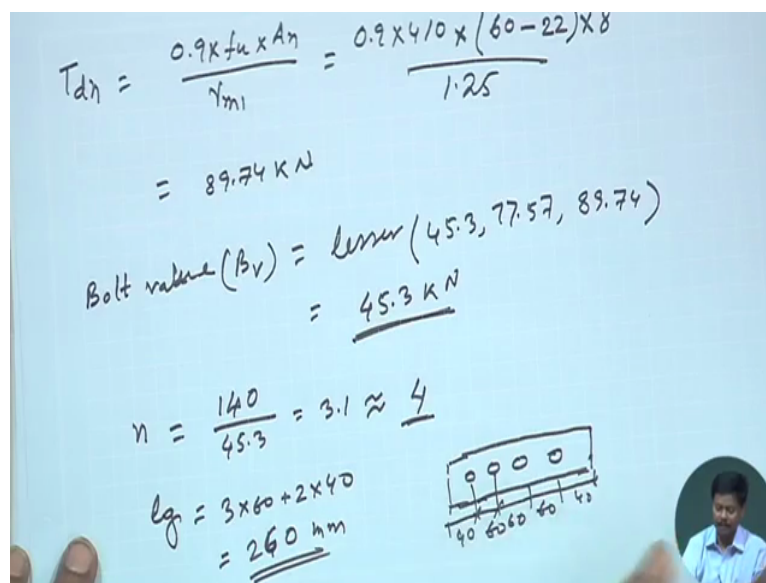 Tdn = 0.9 x fu x An / γm1 = 0.9 x 410 x (60-22) x 8 / 1.25
= 89.74 KN
Bolt value (Bv) = lesser (45.3, 77.57, 89.74)
= 45.3 KN
n = 140 / 45.3 = 3.1 ≈ 4
lg = 3x60+2x40
= 260 mm
40 60 60 60 40